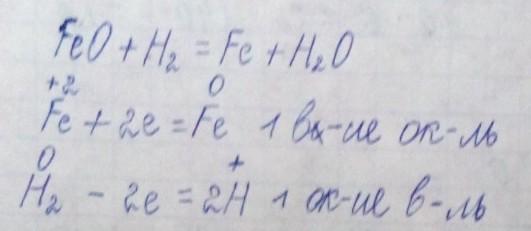 FeO + H₂ = Fe + H₂O
+2 0
Fe + 2e = Fe 1 в-ие ок-ль
0 +
H₂ - 2e = 2H 1 ок-ие в-ль